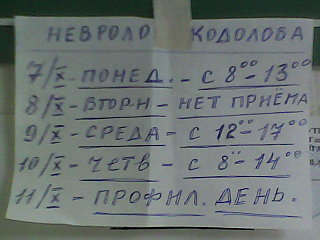 НЕВРОЛО КОДОЛОВА
7/X - ПОНЕД. - С 8⁰⁰ - 13⁰⁰
8/X - ВТОРН - НЕТ ПРИЁМА
9/X - СРЕДА - С 12⁰⁰ - 17⁰⁰
10/X - ЧЕТВ - С 8⁰⁰ - 14⁰⁰
11/X - ПРОФИЛ. ДЕНЬ.